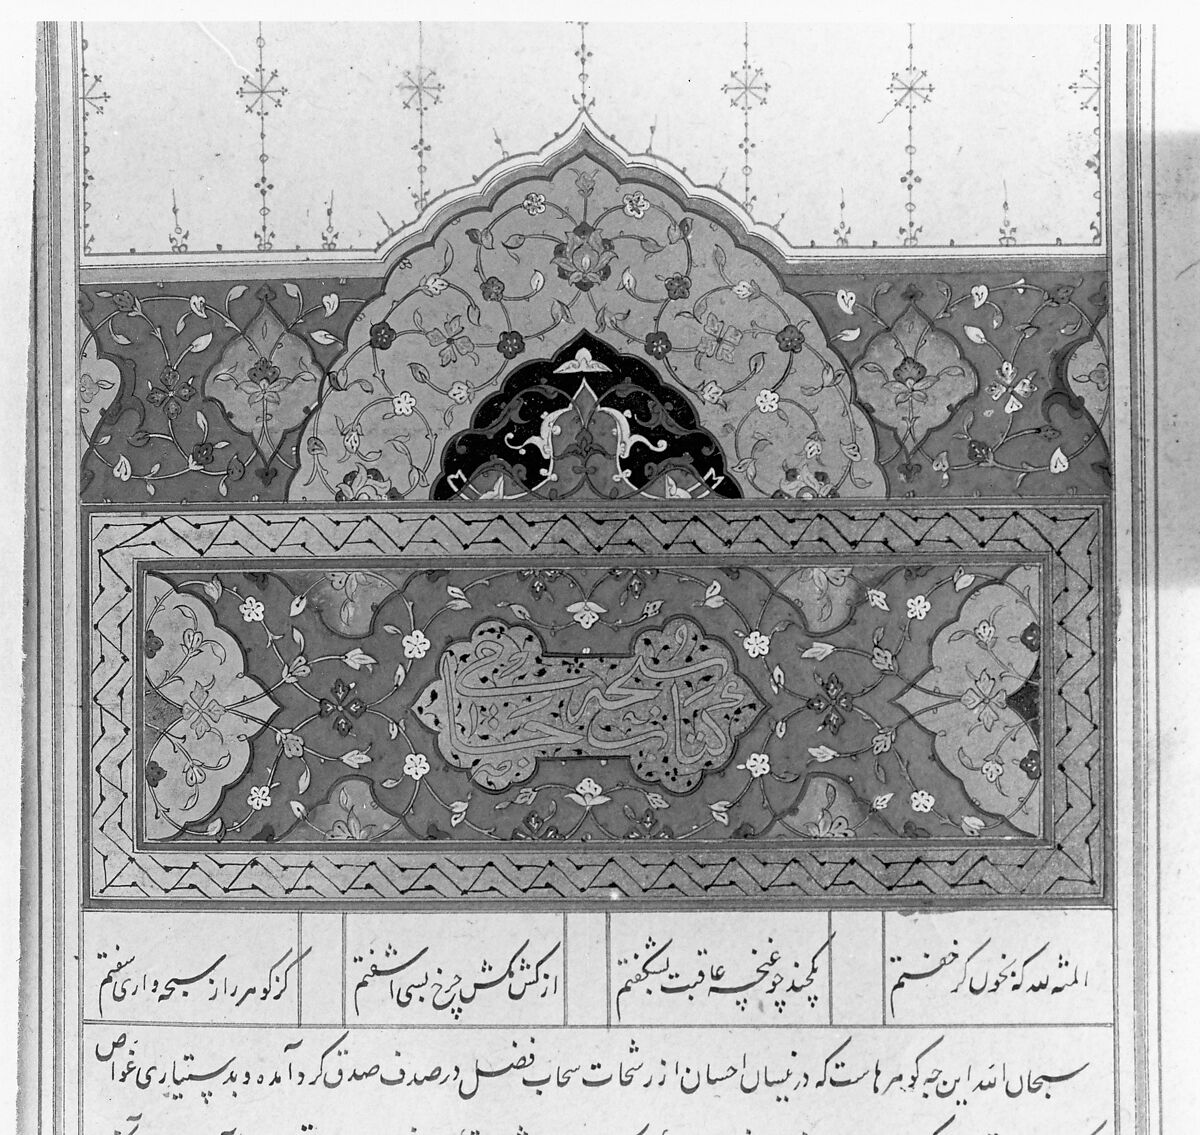 کتاب سبحة
المنة لله که بخون گر خفتم یکچند چو غنچه عاقبت بشکفتم از کش مکش چرخ بسی آشفتم کز گوهر راز سبحه واری سفتم
سبحان الله این چه گوهرهاست که در نیسان احسان از رشحات سحاب فضل در صدف صدق گرد آمده و بدستیاری غواص